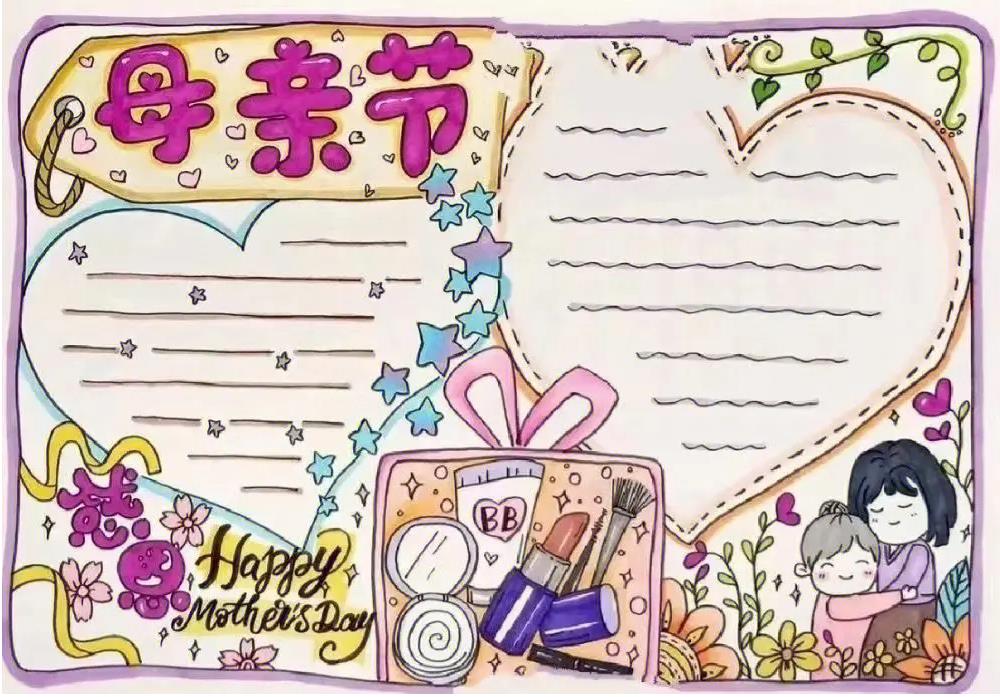 母亲节
感
恩
Happy
Mother's Day
BB